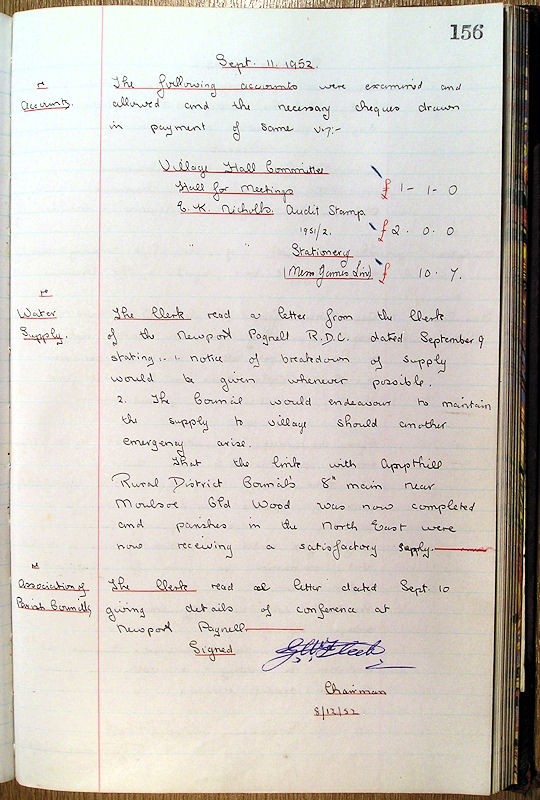 156
Sept. 11. 1952.
Accounts. The following accounts were examined and
allowed and the necessary cheques drawn
in payment of same viz:-
Village Hall Committee
Hall for Meetings £ 1 - 1 - 0
E. K. Nicholls. Audit Stamp
1951/2. £ 2. 0. 0
" " Stationery
(Messrs James Ltd) £ 10. 7.
Water The Clerk read a letter from the Clerk
Supply. of the Newport Pagnell R.D.C. dated September 9
stating:- 1. notice of breakdown of supply
would be given whenever possible.
2. The Council would endeavour to maintain
the supply to village should another
emergency arise.
That the link with Ampthill
Rural District Council's 8" main near
Moulsoe Old Wood was now completed
and parishes in the North East were
now receiving a satisfactory supply.
Association of The Clerk read a letter dated Sept. 10
Parish Councils giving details of conference at
Newport Pagnell
Signed
Chairman
8/12/52